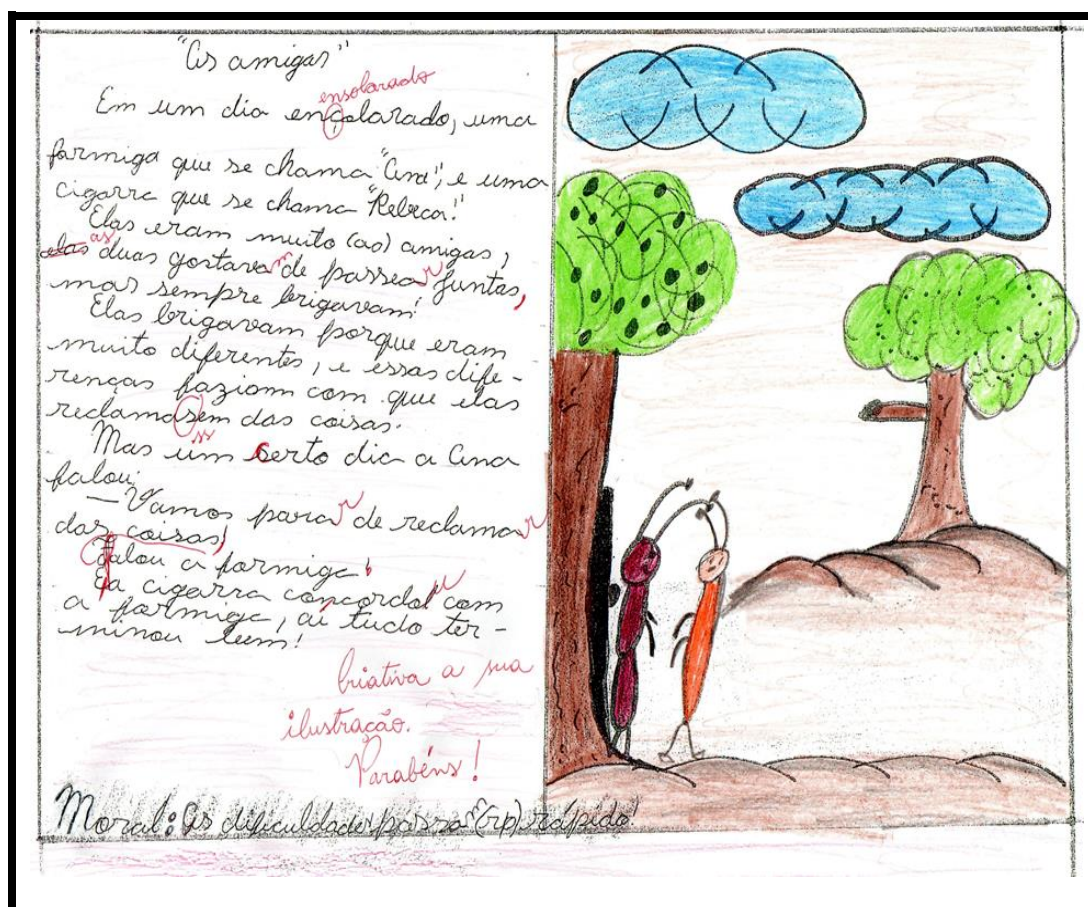 "As amigas"
ensolarado
Em um dia ençolarado, uma
formiga que se chama "Ana", e uma
cigarra que se chama "Rebeca".
Elas eram muito (as) amigas,
elas as duas gostava m de passea r juntas,
mas sempre brigavam!
Elas brigavam porque eram
muito diferentes, e essas dife-
renças faziam com que elas
reclamasem das coisas.
ss
Mas um serto dia a Ana
falou:
— Vamos para r de reclama r
das coisas,
falou a formiga!
E a cigarra concordol u com
a formiga, aí tudo ter-
minou bem!
Criativa a sua
ilustração.
Parabéns!
Moral: As dificuldades passa (rp) rápido